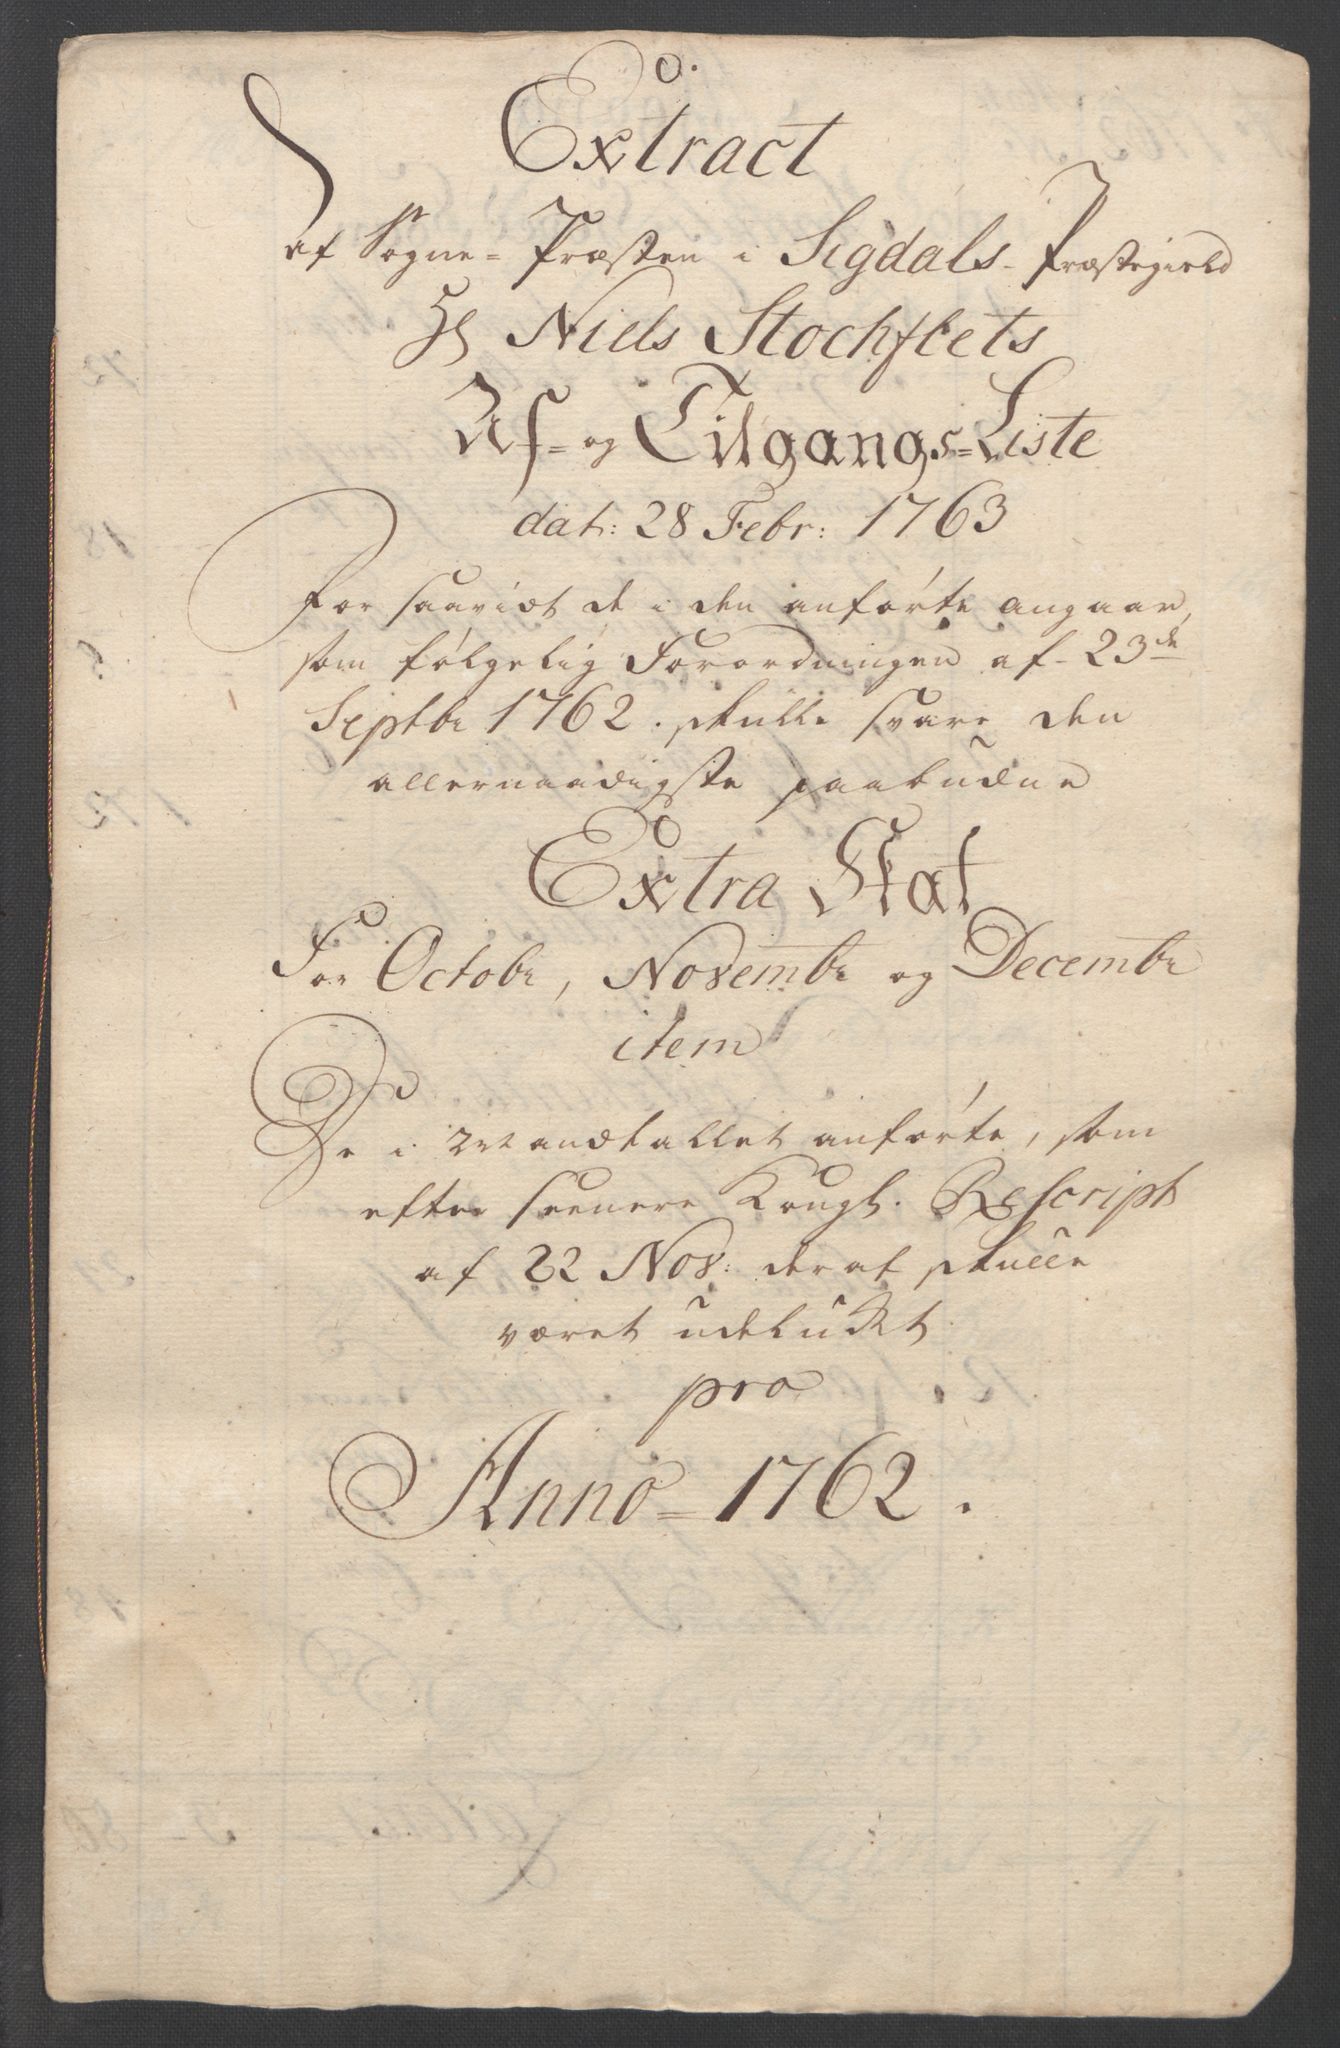 Extract
af Sogne-Præsten i Sigdals Præstegield
Hr Niels Stochflets
Af- og Tilgangs-Liste
dat: 28 Febr: 1763
For saavidt de i den anførte angaar,
som følgelig Forordningen af 23de
Septbr 1762. skulle svare den
allernaadigste paabudne
Extra Skat
For Octobr, Novembr og Decembr
item
De i Mandtallet anførte, som
efter seenere Kongl. Rescript
af 22 Nov: derat skulle
været udelukt
pro
Anno 1762.